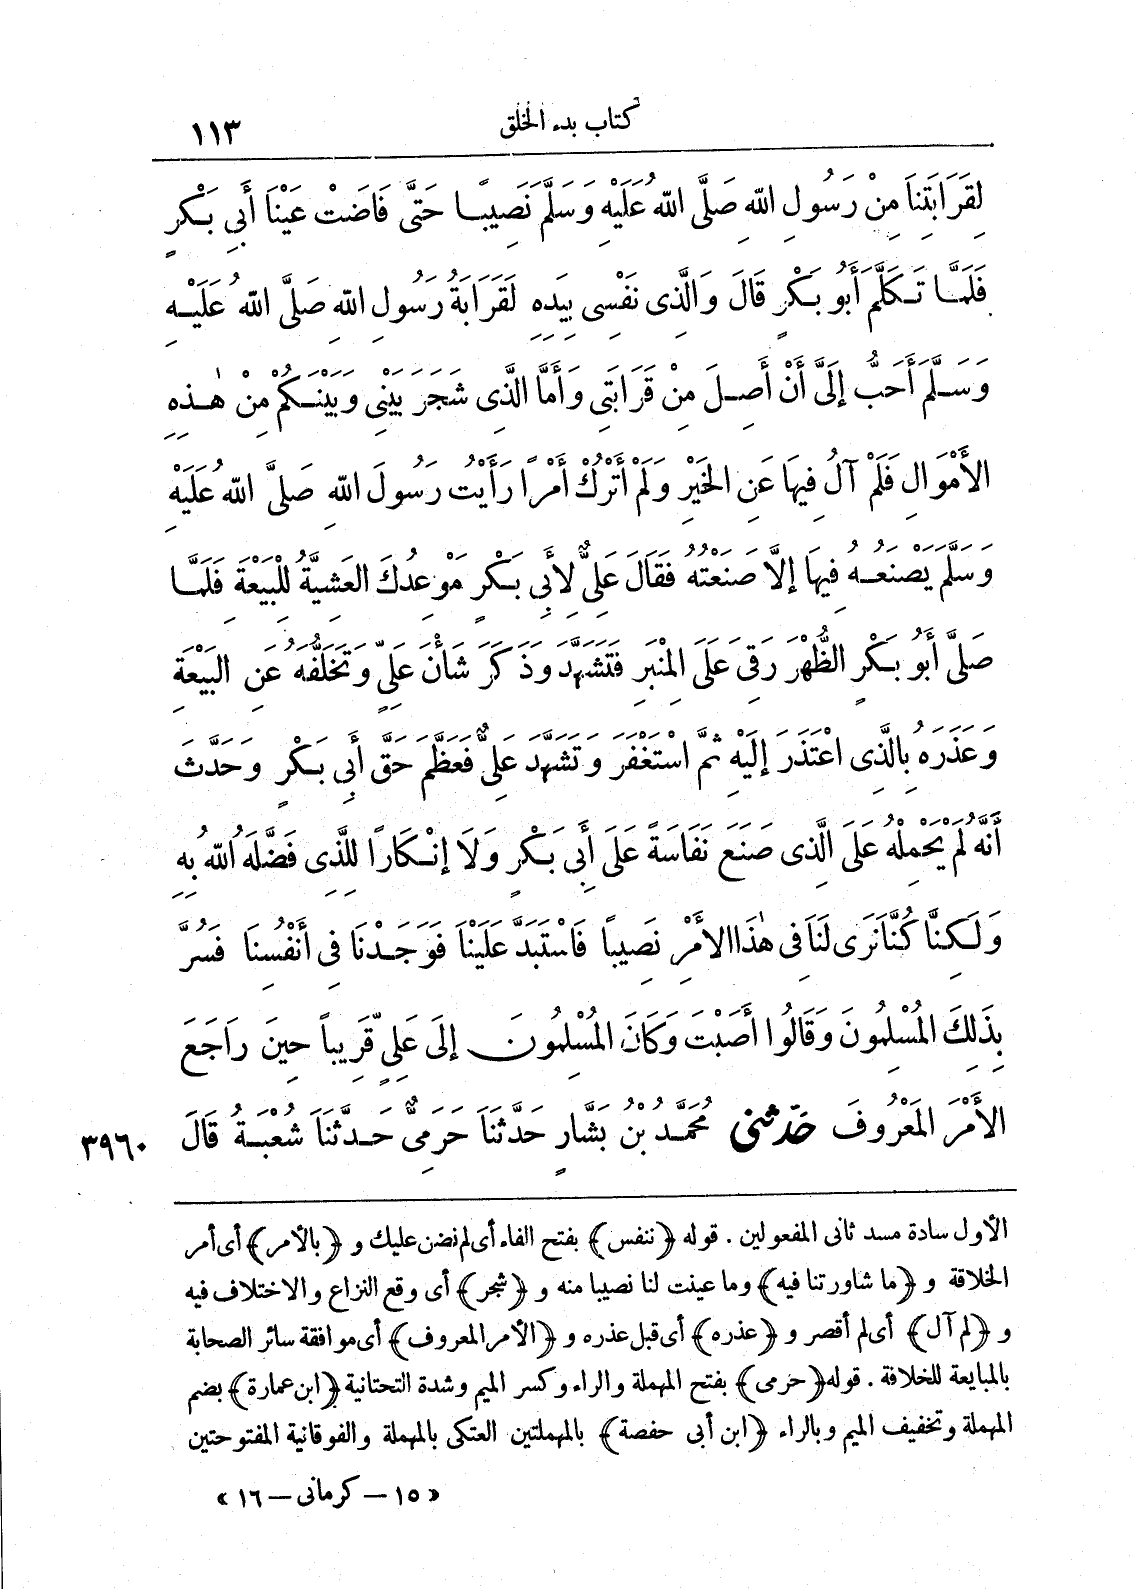 كتاب بدء الخلق ١١٣
لِقَرَابَتِنَا مِنْ رَسُولِ اللّهِ صَلَّى اللّهُ عَلَيْهِ وَسَلَّمَ نَصِيبًا حَتَّى فَاضَتْ عَيْنَا أَبِى بَكْرٍ
فَلَمَّا تَكَلَّمَ أَبُو بَكْرٍ قَالَ وَالَّذِى نَفْسِى بِيَدِهِ لَقَرَابَةُ رَسُولِ اللّهِ صَلَّى اللّهُ عَلَيْهِ
وَسَلَّمَ أَحَبُّ إِلَىَّ أَنْ أَصِلَ مِنْ قَرَابَتِى وَأَمَّا الَّذِى شَجَرَ بَيْنِى وَبَيْنَكُمْ مِنْ هٰذِهِ
الأَمْوَالِ فَلَمْ آلُ فِيهَا عَنِ الخَيْرِ وَلَمْ أَتْرُكْ أَمْرًا رَأَيْتُ رَسُولَ اللّهِ صَلَّى اللّهُ عَلَيْهِ
وَسَلَّمَ يَصْنَعُهُ فِيهَا إِلَّا صَنَعْتُهُ فَقَالَ عَلِىٌّ لِأَبِى بَكْرٍ مَوْعِدُكَ العَشِيَّةُ لِلْبَيْعَةِ فَلَمَّا
صَلَّى أَبُو بَكْرٍ الظُّهْرَ رَقِىَ عَلَى المِنْبَرِ فَتَشَهَّدَ وَذَكَرَ شَأْنَ عَلِىٍّ وَتَخَلُّفَهُ عَنِ البَيْعَةِ
وَعَذَرَهُ بِالَّذِى اعْتَذَرَ إِلَيْهِ ثُمَّ اسْتَغْفَرَ وَتَشَهَّدَ عَلِىٌّ فَعَظَّمَ حَقَّ أَبِى بَكْرٍ وَحَدَّثَ
أَنَّهُ لَمْ يَحْمِلْهُ عَلَى الَّذِى صَنَعَ نَفَاسَةً عَلَى أَبِى بَكْرٍ وَلَا إِنْكَارًا لِلَّذِى فَضَّلَهُ اللّهُ بِهِ
وَلَكِنَّا كُنَّا نَرَى لَنَا فِى هٰذَا الأَمْرِ نَصِيبًا فَاسْتَبَدَّ عَلَيْنَا فَوَجَدْنَا فِى أَنْفُسِنَا فَسُرَّ
بِذَلِكَ المُسْلِمُونَ وَقَالُوا أَصَبْتَ وَكَانَ المُسْلِمُونَ إِلَى عَلِىٍّ قَرِيبًا حِينَ رَاجَعَ
الأَمْرَ المَعْرُوفَ حَدّثنى مُحَمَّدُ بْنُ بَشَّارٍ حَدَّثَنَا حَرَمِىٌّ حَدَّثَنَا شُعْبَةُ قَالَ ٣٩٦٠
الأول سادة مسد ثانى المفعولين . قوله ﴿ننفس﴾ بفتح الفاء أى لم نضن عليك و ﴿بالأمر﴾ أى أمر
الخلافة و ﴿ما شاورتنا فيه﴾ وما عينت لنا نصيبا منه و ﴿شجر﴾ أى وقع النزاع والاختلاف فيه
و ﴿لم آل﴾ أى لم أقصر و ﴿عذره﴾ أى قبل عذره و ﴿الأمر المعروف﴾ أى موافقة سائر الصحابة
بالمبايعة للخلافة . قوله ﴿حرمى﴾ بفتح المهملة والراء وكسر الميم وشدة التحتانية ﴿ابن عمارة﴾ بضم
المهملة وتخفيف الميم وبالراء ﴿ابن أبى حفصة﴾ بالمهملتين العتكى بالمهملة والفوقانية المفتوحتين
« ١٥ – كرمانى – ١٦ »